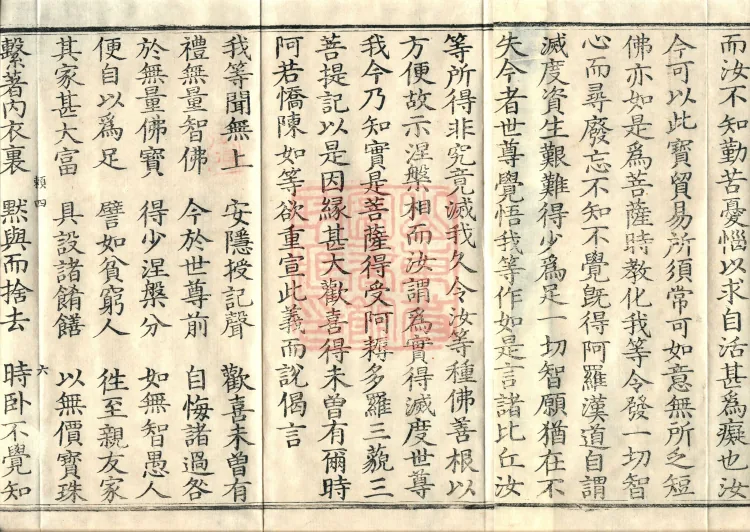 而汝不知勤苦憂惱以求自活甚爲癡也汝
今可以此寶貿易所須常可如意無所乏短
佛亦如是爲菩薩時教化我等令發一切智
心而尋廢忘不知不覺旣得阿羅漢道自謂
滅度資生艱難得少爲足一切智願猶在不
失今者世尊覺悟我等作如是言諸比丘汝
等所得非究竟滅我久令汝等種佛善根以
方便故示涅槃相而汝謂爲實得滅度世尊
我今乃知實是菩薩得受阿耨多羅三藐三
菩提記以是因緣甚大歡喜得未曾有爾時
阿若憍陳如等欲重宣此義而說偈言
我等聞無上 安隱授記聲 歡喜未曾有
禮無量智佛 今於世尊前 自悔諸過咎
於無量佛寶 得少涅槃分 如無智愚人
便自以爲足 譬如貧窮人 徃至親友家
其家甚大富 具設諸餚饍 以無價寶珠
賴四 六
繫著內衣裏 默與而捨去 時卧不覺知